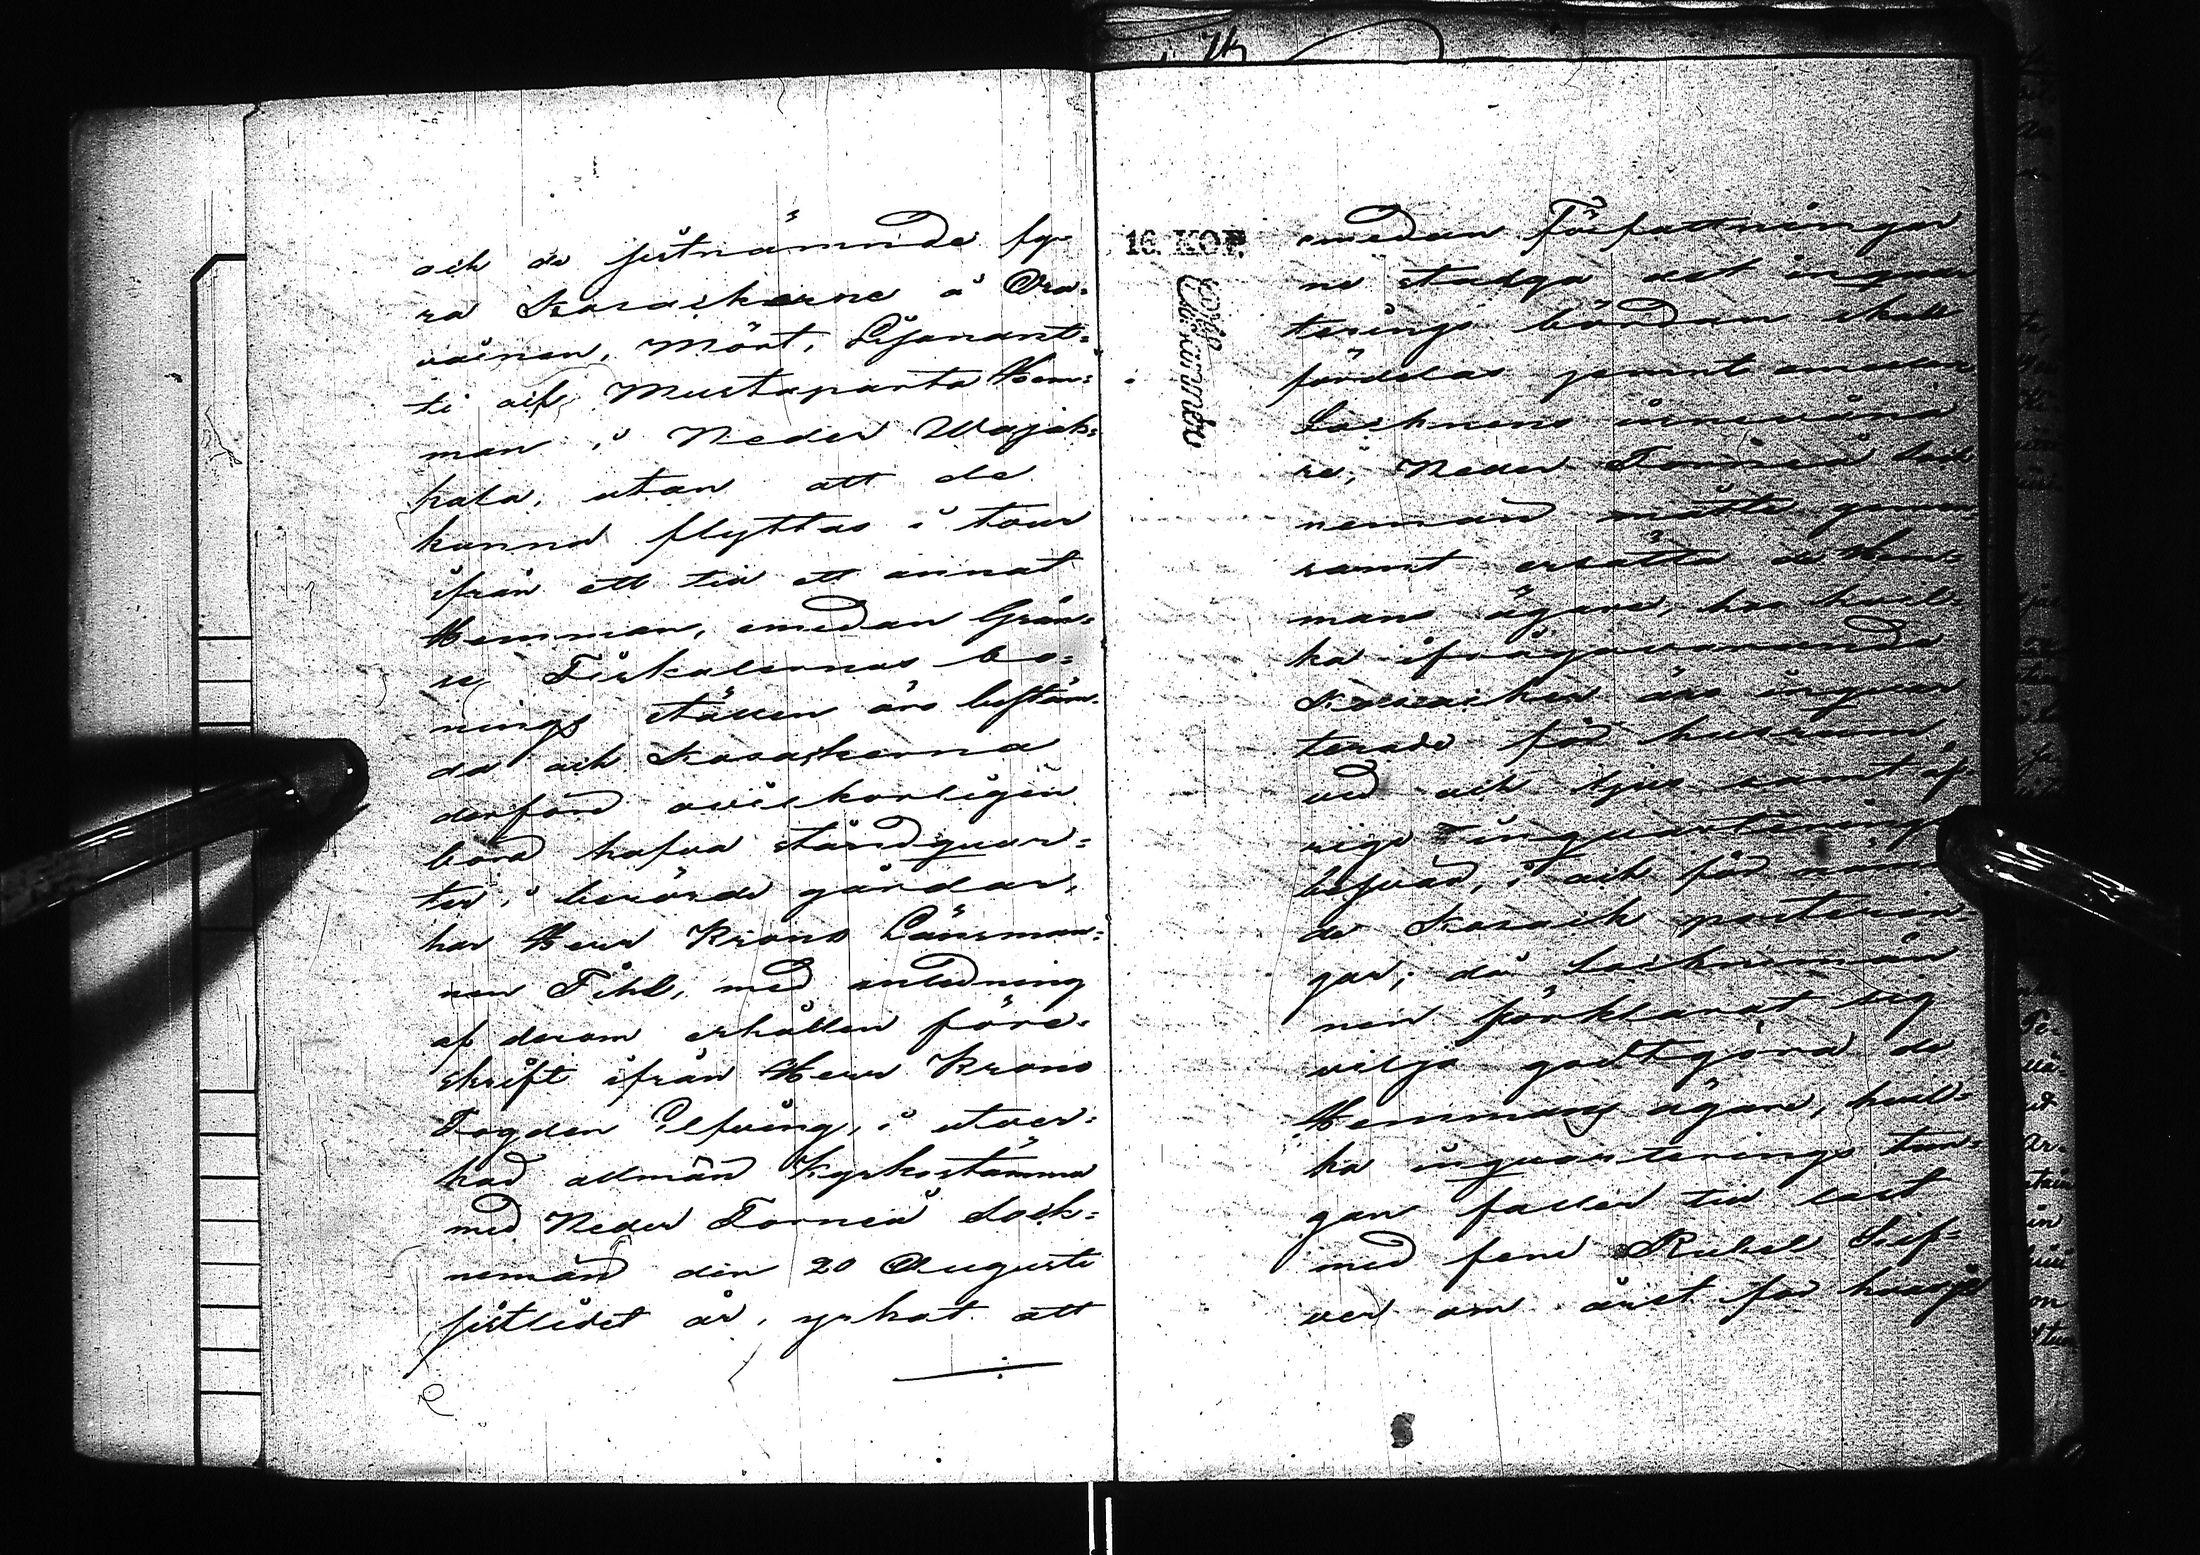 och de sistnämnde fy-
ra Kosackerne å Ora-
vainen, Mört, Lijanant-
ti och Mustaparta Hem-
man i Neder Wojak-
kala, utan att de
kunna flyttas i tour
ifrån ett till ett annat
Hemman, emedan Grän-
se Fiskalernas bo-
nings ställen äro bestäm-
da och Kosackerna
derföre oviskorligen
bord hafva ståndquar-
ter i berörde gårdar,
har Herr Krono Länsman-
nen Fihl, med anledning
af derom erhållen före-
skrift ifrån Herr Krono
Fogden Elfving, i utver-
kad allmän Kyrkostämma
med Neder Torneå Sock-
nemän den 20 Augusti
sistledet år, yrkat att
16. KOP.
emedan Författningar
ne stadga att inquar
terings bördan skall
fördelas jemnt emellan
Socknens innevåna
re, Neder Torneå Sock
nemän måtte gemen
samt ersätta de Hem-
mans ägare, hos hvil-
ka ifrågavarande
Kossacker äro inquar
terade för husrum
ved och ljus samt öf
rige inquarterings
besvär, i och för näm
de Kosack posterin-
gar; då Sockenemän
nen förklarat sig
vilja godtgöra de
Hemmans ägare, hvil-
ka inquarterings tun-
gan faller till last
med fem Rubel Silf-
ver om året för hvarje